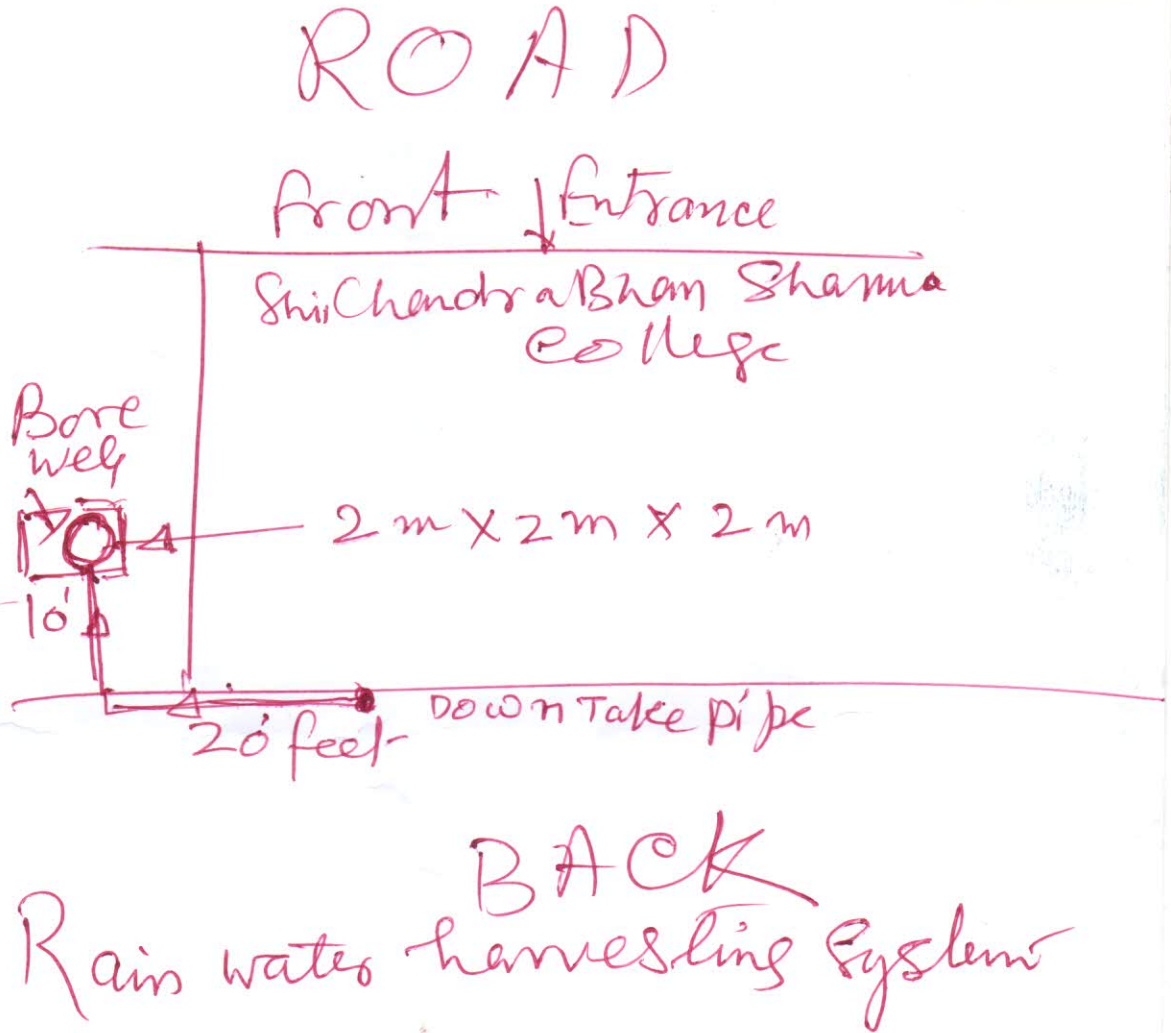 ROAD
front Entrance
Shri Chandra Bhan Sharma
College
Bore
well
2 m X 2 m X 2 m
10'
20' feet
Down Take pipe
BACK
Rain water harvesting System